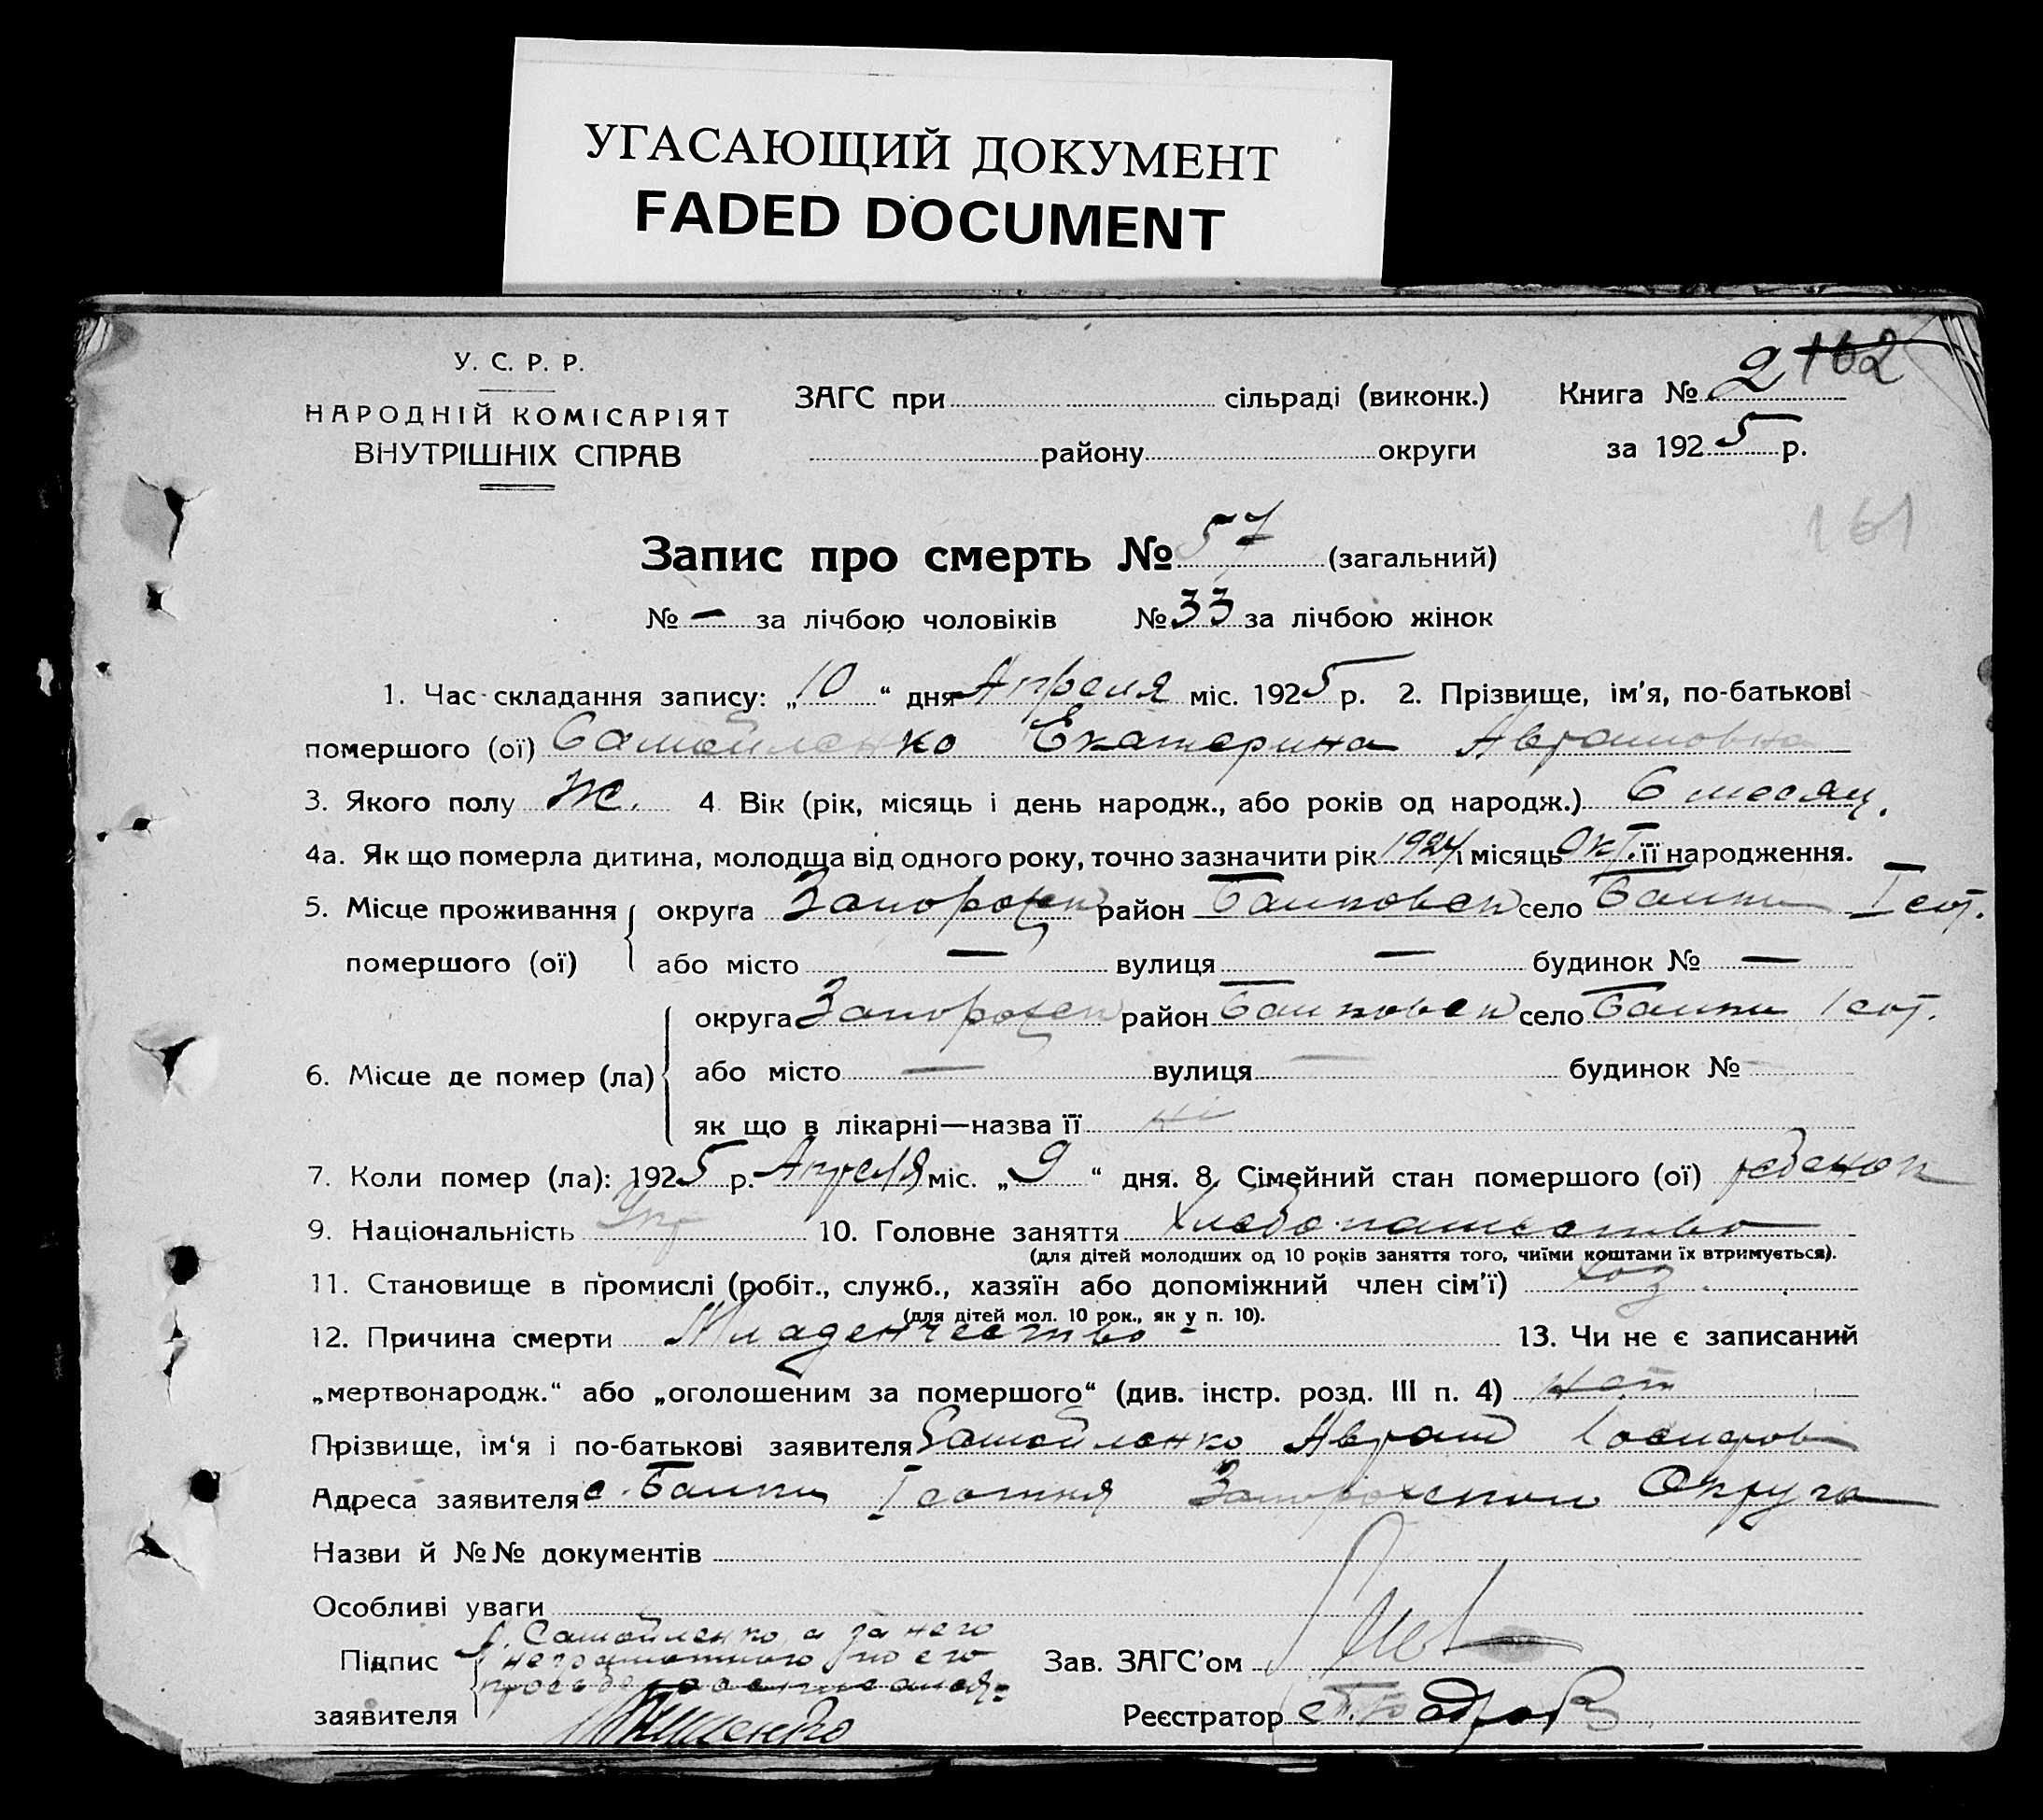 УГАСАЮЩИЙ ДОКУМЕНТ
FADED DOCUMENT
У. С. Р. Р.
НАРОДНІЙ КОМІСАРІЯТ
ВНУТРІШНІХ СПРАВ
ЗАГС при сільраді (виконк.)
району округи
Книга № 2 162
за 1925 р.
161
Запис про смерть № 57 (загальний)
№ — за лічбою чоловіків № 33 за лічбою жінок
1. Час складання запису: „10“ дня Апреля міс. 1925 р. 2. Прізвище, ім'я, по-батькові
помершого (ої) Самойленко Екатерина Аврамовна
3. Якого полу Ж. 4 Вік (рік, місяць і день народж., або років од народж.) 6 месяц.
4а. Як що померла дитина, молодща від одного року, точно зазначити рік 1924 і місяць Окт. її народження.
5. Місце проживання округа Запорожск район Балковск село Балки I сот.
помершого (ої) або місто — вулиця — будинок № —
округа Запорожск район Балковск село Балки I сот.
6. Місце де помер (ла) або місто — вулиця — будинок № —
як що в лікарні—назва її ні
7. Коли помер (ла): 1925 р. Апреля міс. „9“ дня. 8. Сімейний стан помершого (ої) ребенок
9. Національність Укр 10. Головне заняття Хлебопашество
(для дітей молодших од 10 років заняття того, чиїми коштами їх втримується).
11. Становище в промислі (робіт., служб., хазяїн або допоміжний член сім'ї) хоз
(для дітей мол. 10 рок., як у п. 10).
12. Причина смерти Младенчество 13. Чи не є записаний
„мертвонародж.“ або „оголошеним за помершого“ (див. інстр. розд. III п. 4) нет
Прізвище, ім'я і по-батькові заявителя Самойленко Аврам
Адреса заявителя с. Балки I сотня Запорожской Округа
Назви й №№ документів
Особливі уваги
Підпис А. Самойленко, а за него
неграмотного по его
просьбе росписался
заявителя
Зав. ЗАГС'ом
Реєстратор